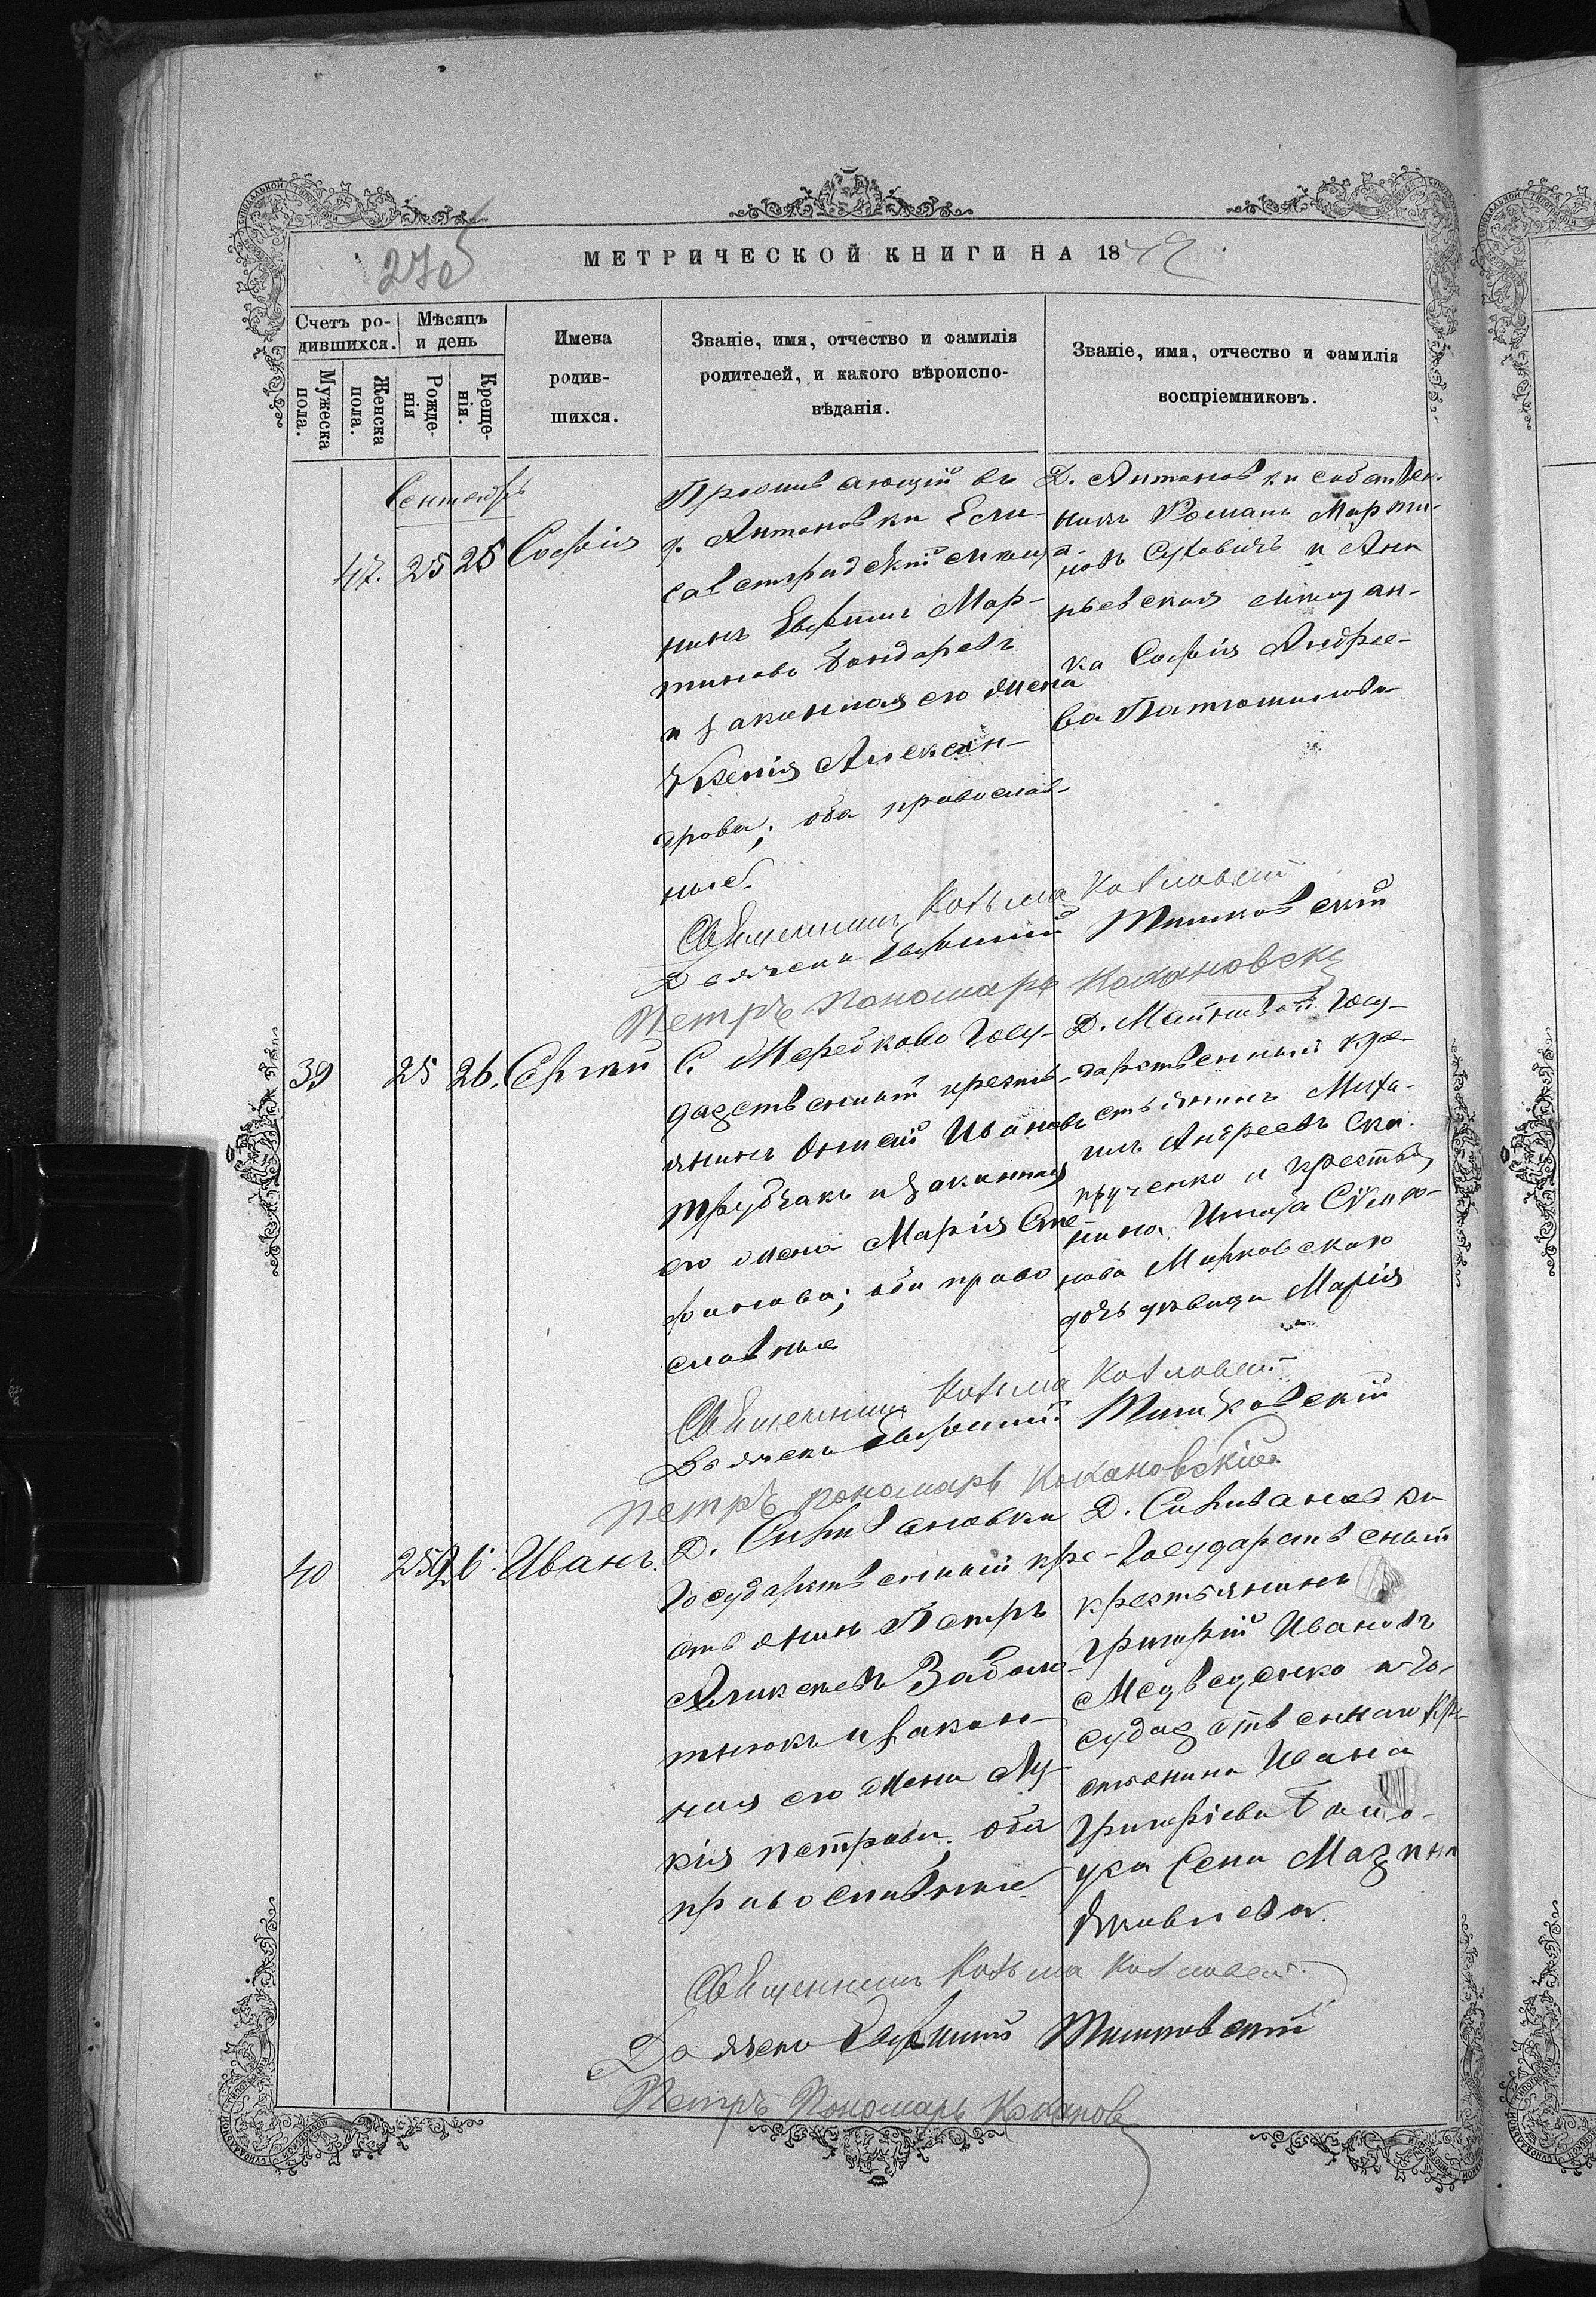 МЕТРИЧЕСКОЙ КНИГИ НА 1872
Счетъ родившихся.
Мужеска пола.
Женска пола.
Мѣсяцъ и день
Рожденія
Крещенія.
Имена родившихся.
Званіе, имя, отчество и фамилія родителей, и какого вѣроисповѣданія.
Званіе, имя, отчество и фамилія воспріемниковъ.
Сентябрь
47. 25 25 Софія
Проживающій въ
д. Антоновки Ели-
саветградскій мѣща-
нинъ Евфимъ Мар-
тиновъ Бондаревъ
и законная его жена
Ксенія Алексан-
дрова; оба православ-
ные.
Д. Антоновки собствен-
никъ Романъ Марти-
новъ
мѣщан-
ка Софія Андрее-
ва
Священникъ Козьма Козловскій
Дьячекъ Евфимій Тимковскій
Петръ Пономарь Кохановскі
39 25 26. Сергѣй
С. Госу-
дарственный кресть-
янинъ Иванов
Трубчакъ и законная
его жена Марія Сте-
фанова; оба право
славные
Д. Госу-
дарственный кре-
стьянинъ Миха-
илъ Андреевъ Ска-
прученко и крестья
нина
нова Марковскаго
дочь дѣвица Марія
Священникъ Козьма Козловскій
Дьячекъ Евфимій Тимковскій
Петръ Пономарь Кохановскій
40 25 26 Иванъ.
Д. Селивановки
Государственный кре-
стьянинъ Петръ
Алексѣевъ Заболо-
тнюкъ и закон-
ная его жена Лу-
кія Петрова; оба
православные
Д. Селивановки
Государственый
крестьянинъ
Григорій Ивановъ
Медведенко и Го-
сударственнаго кре
стьянина Ивана
Григоріева
жена
Яковлева.
Священникъ Козьма Козловскій
Дьячекъ Евфимій Тимковскій
Петръ Пономарь Коханов